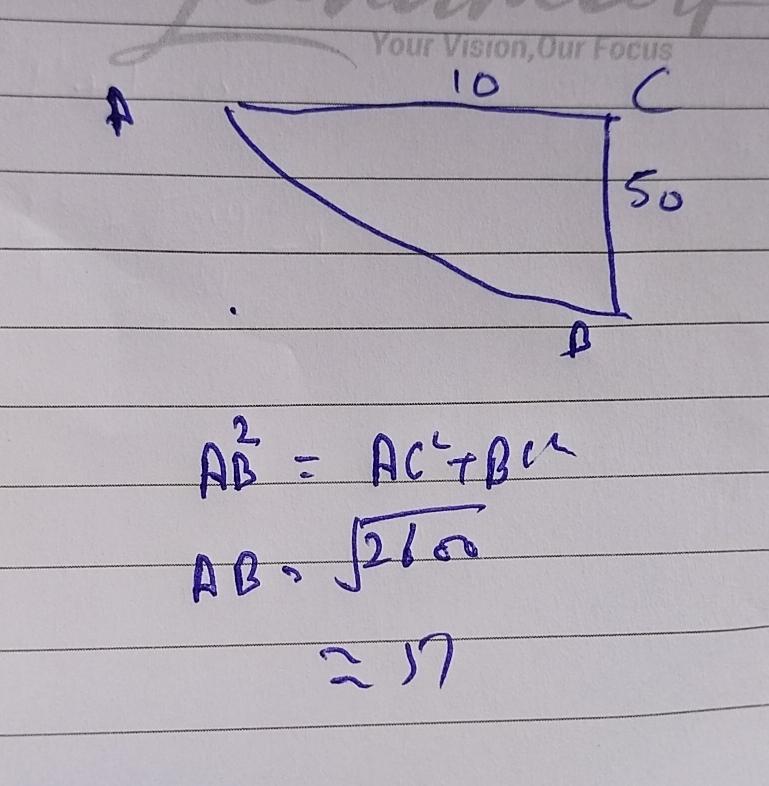 Your Vision, Our Focus
10
A
C
50
B
AB² = AC² + BC²
AB = √2600
≃ 57